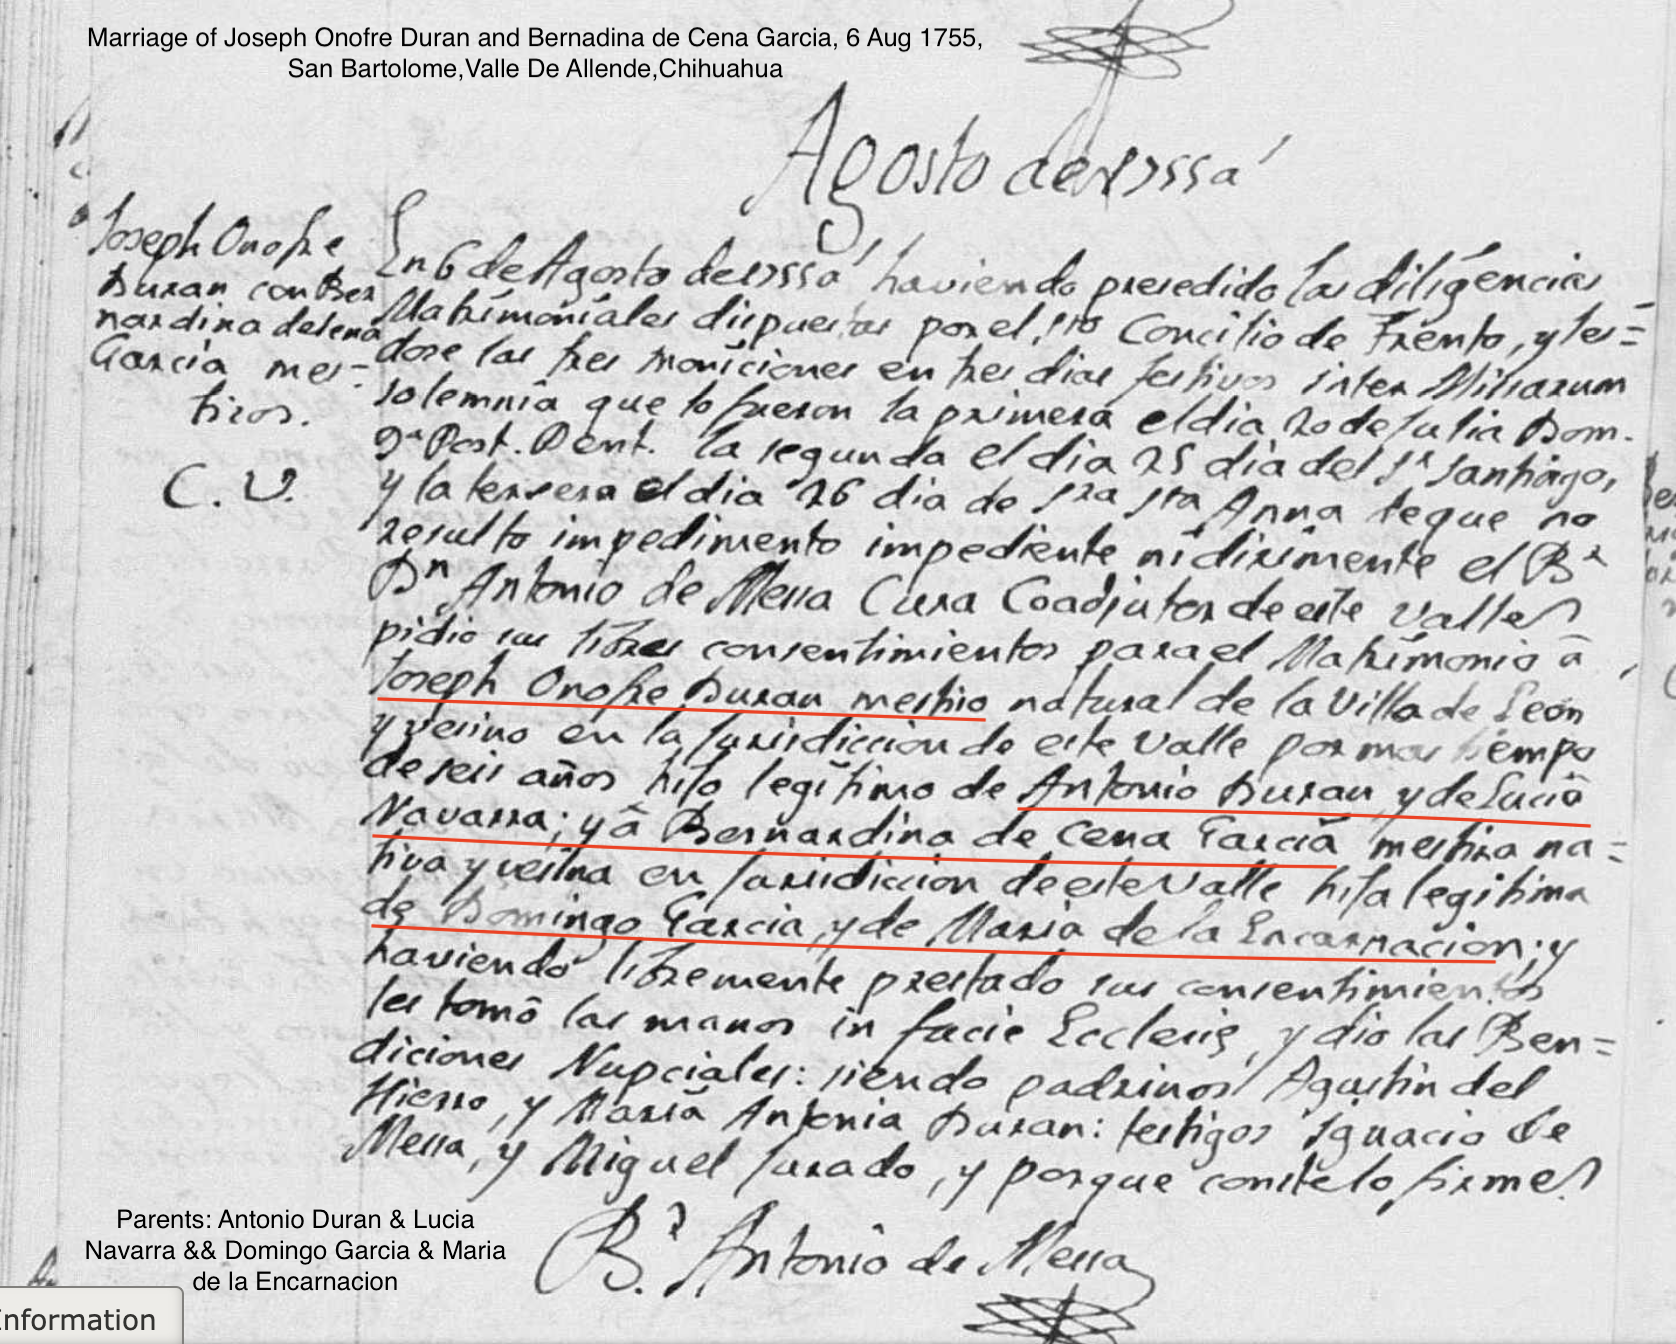 Marriage of Joseph Onofre Duran and Bernadina de Cena Garcia, 6 Aug 1755,
San Bartolome,Valle De Allende,Chihuahua
Agosto de 1755 a
Joseph Onofre
Duran con Ber
nardina de Sena
Garcia mes=
tizos.
C. V.
En 6 de Agosto de 1755 a haviendo presedido las diligencias
Matrimoniales dispuestas por el sto Concilio de Trento, y les=
dose las tres moniciones en tres dias festivos inter Missarum
solemnia que lo fueron la primera el dia 20 de Julia Dom.
9a Post. Pent. la segunda el dia 25 dia del Sr Santhiago,
y la tersera el dia 26 dia de Sra Sta Anna de que no
resulto impedimento impediente ni dirimente el Br
Dn Antonio de Messa Cura Coadjutor de este Valle
pidio sus libres consentimientos para el Matrimonio a
Joseph Onofre Duran mestizo natural de la Villa de Leon
y vesino en la Jurisdiccion de este Valle por mas tiempo
de seis años hijo legitimo de Antonio Duran y de Lucia
Navarra; y a Bernardina de Cena Garcia mestiza na=
tiva y vesina en Jurisdiccion de este Valle hija legitima
de Domingo Garcia, y de Maria de la Encarnacion; y
haviendo libremente prestado sus consentimientos
les tomó las manos in facie Ecclesie, y dio las Ben=
diciones Nupciales: siendo padrinos Agustin del
Hierro, y Maria Antonia Duran: testigos Ignacio de
Messa, y Miguel Jurado, y porque conste lo firme
Br Antonio de Messa
Parents: Antonio Duran & Lucia
Navarra && Domingo Garcia & Maria
de la Encarnacion
Information